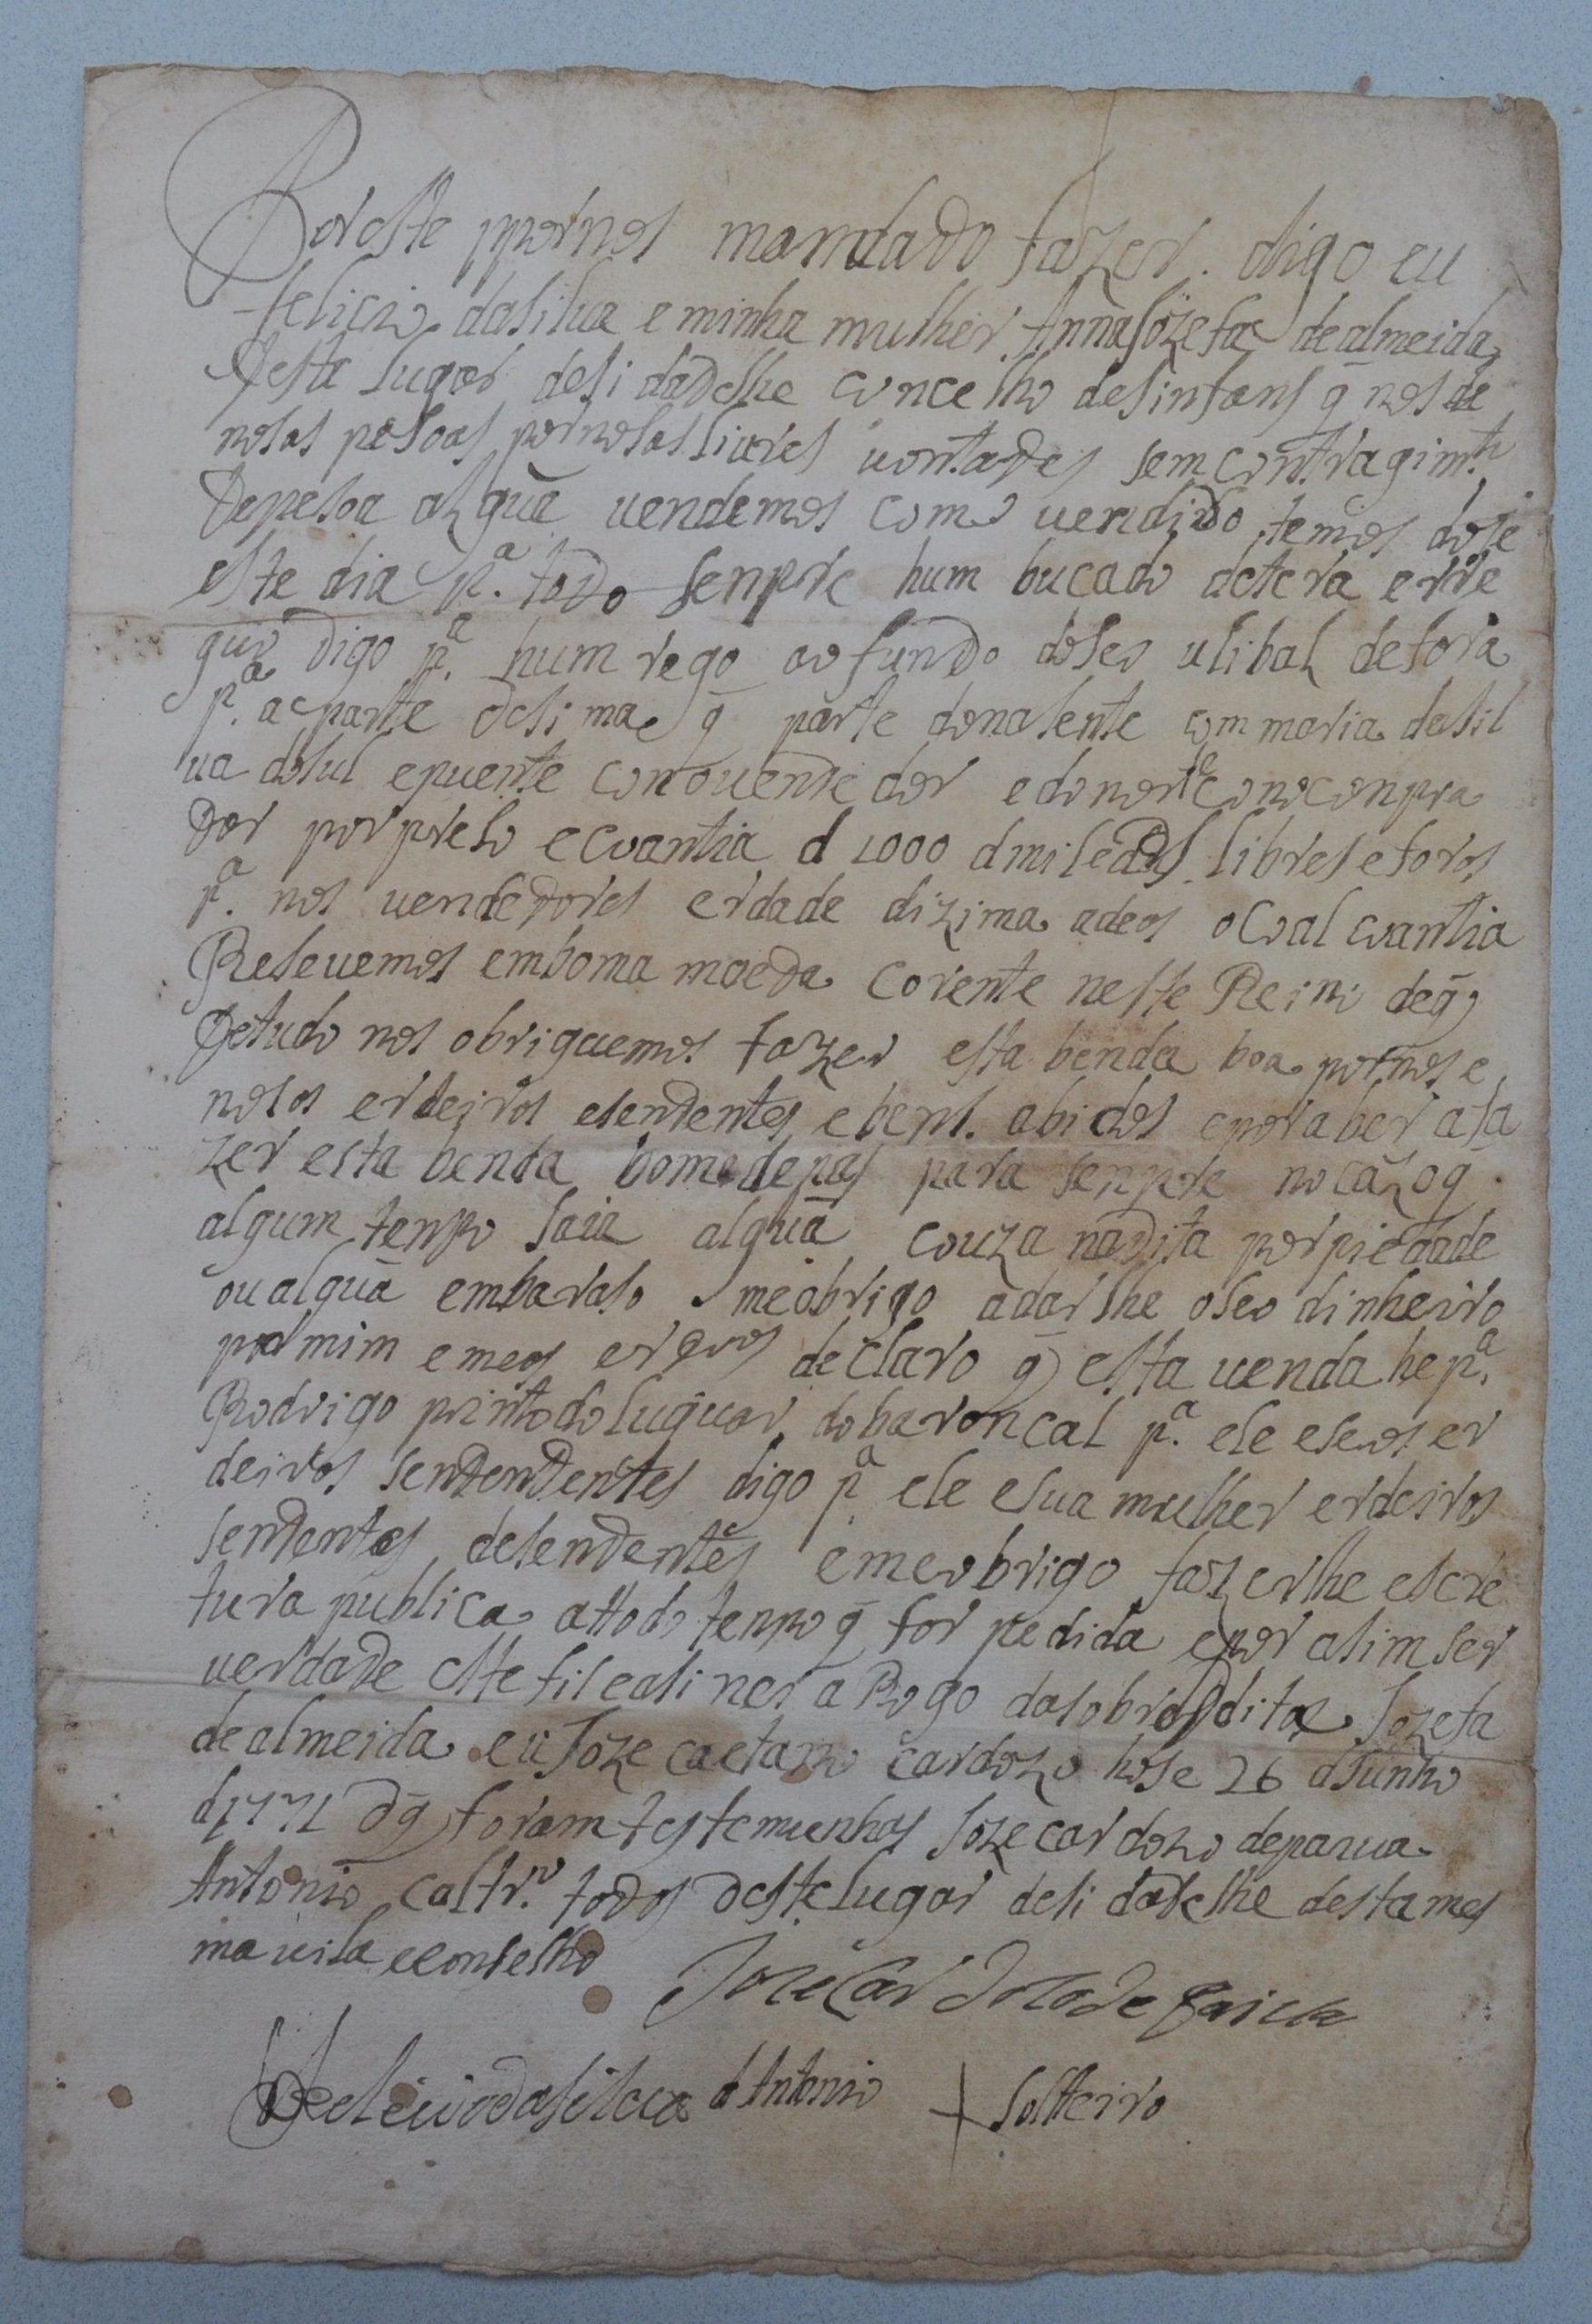 Por este p por nos mandado fazer. digo eu
felicio da silua e minha mulher Anna Jozefa de almeida
deste lugar desidadelhe concelho de sinfans q̃ nos de
nosas pesoas por nosas liures uontades sem contragimto
de pesoa algũa uendemos como uendido temos dose
este dia pa. todo senpre hum bucado de tera e rre
guo digo pa. hum rego ao fundo do seo ulibal de fora
pa. a parte de sima q̃ parte do nasente com maria da sil
ua do sul e puente con o uendedor e do norte con o conpra
dor por preso e coantia d 1000 d mil e dos libres e foros
pa. nos uendedores erdade dizima a deos o coal coantia
Reseuemos em boma moeda corente neste Reino de q̃
de tudo nos obriguemos fazer esta benda boa por nos e
nosos erdeiros esendentes e bens. abidos e por aber a fa
zer esta benda boma de pas para senpre no cazo q̃
algum tenpo saia algũa couza na dita porpiedade
ou algũa embaraso me obrigo a dar lhe o seo dinheiro
por mim e meos erdros declaro q̃ esta uenda he pa.
Rodrigo pinto do luguar do baroncal pa. ele e seos er
deiros sendendentes digo pa. ele e sua mulher erdeiros
sendentes desendentes e me obrigo fazerlhe escre
tura publica a ttodo tenpo q̃ for pedida e por asim ser
uerdade este fis e asinei a Rogo da sobredita Jozefa
de almeida eu Joze caetano cardozo hose 26 d Junho
d 1771 d q̃ foram testemunhas Joze cardozo de paiua
Antonio Castro. todos deste lugar desidadelhe desta mes
ma uila e conselho
Joze Cardozo de Paiva
Felicio da silua d Antonio + soltteiro